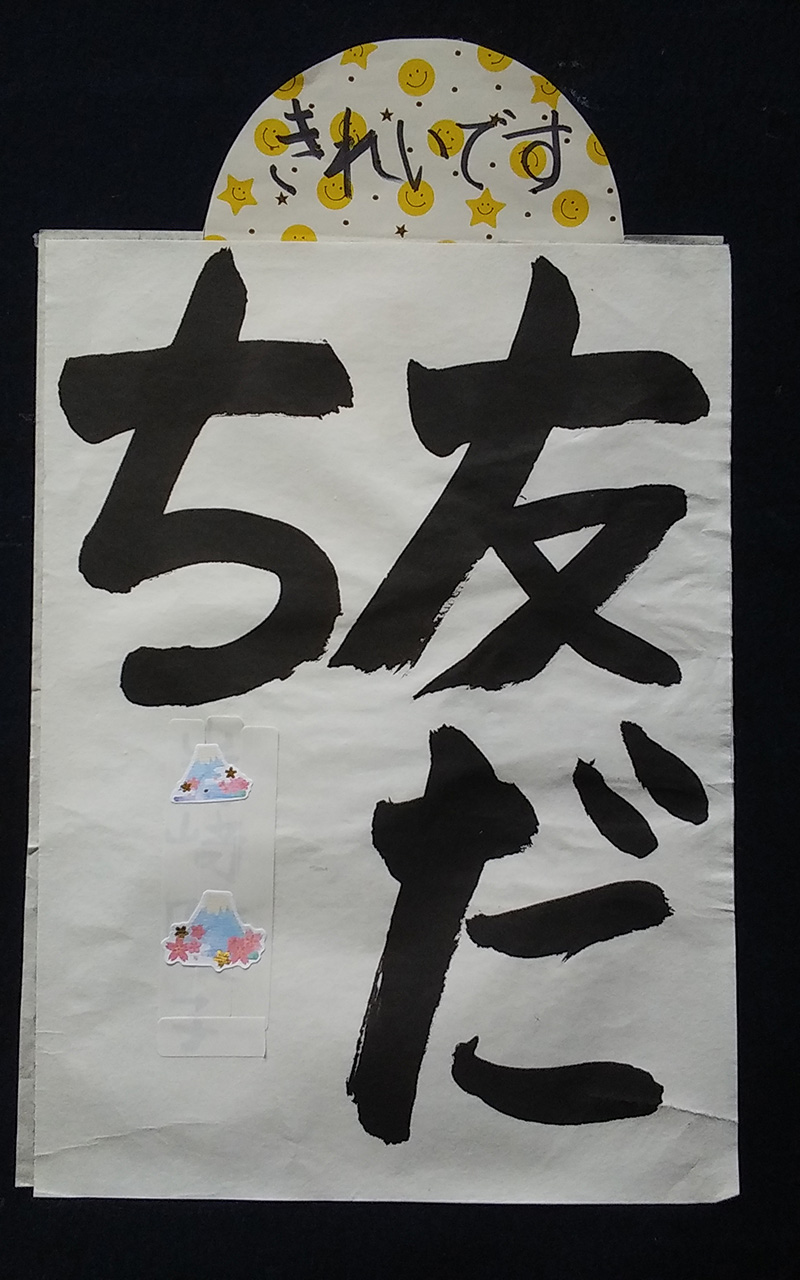 きれいです
友だ
ち